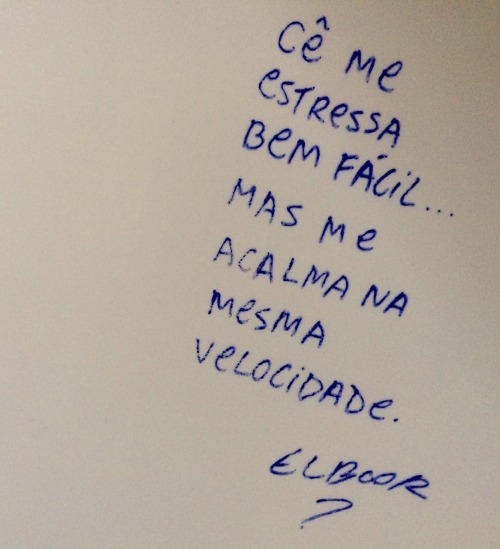 CÊ ME
ESTRESSA
BEM FÁCIL...
MAS ME
ACALMA NA
MESMA
VELOCIDADE.
ELBOOR